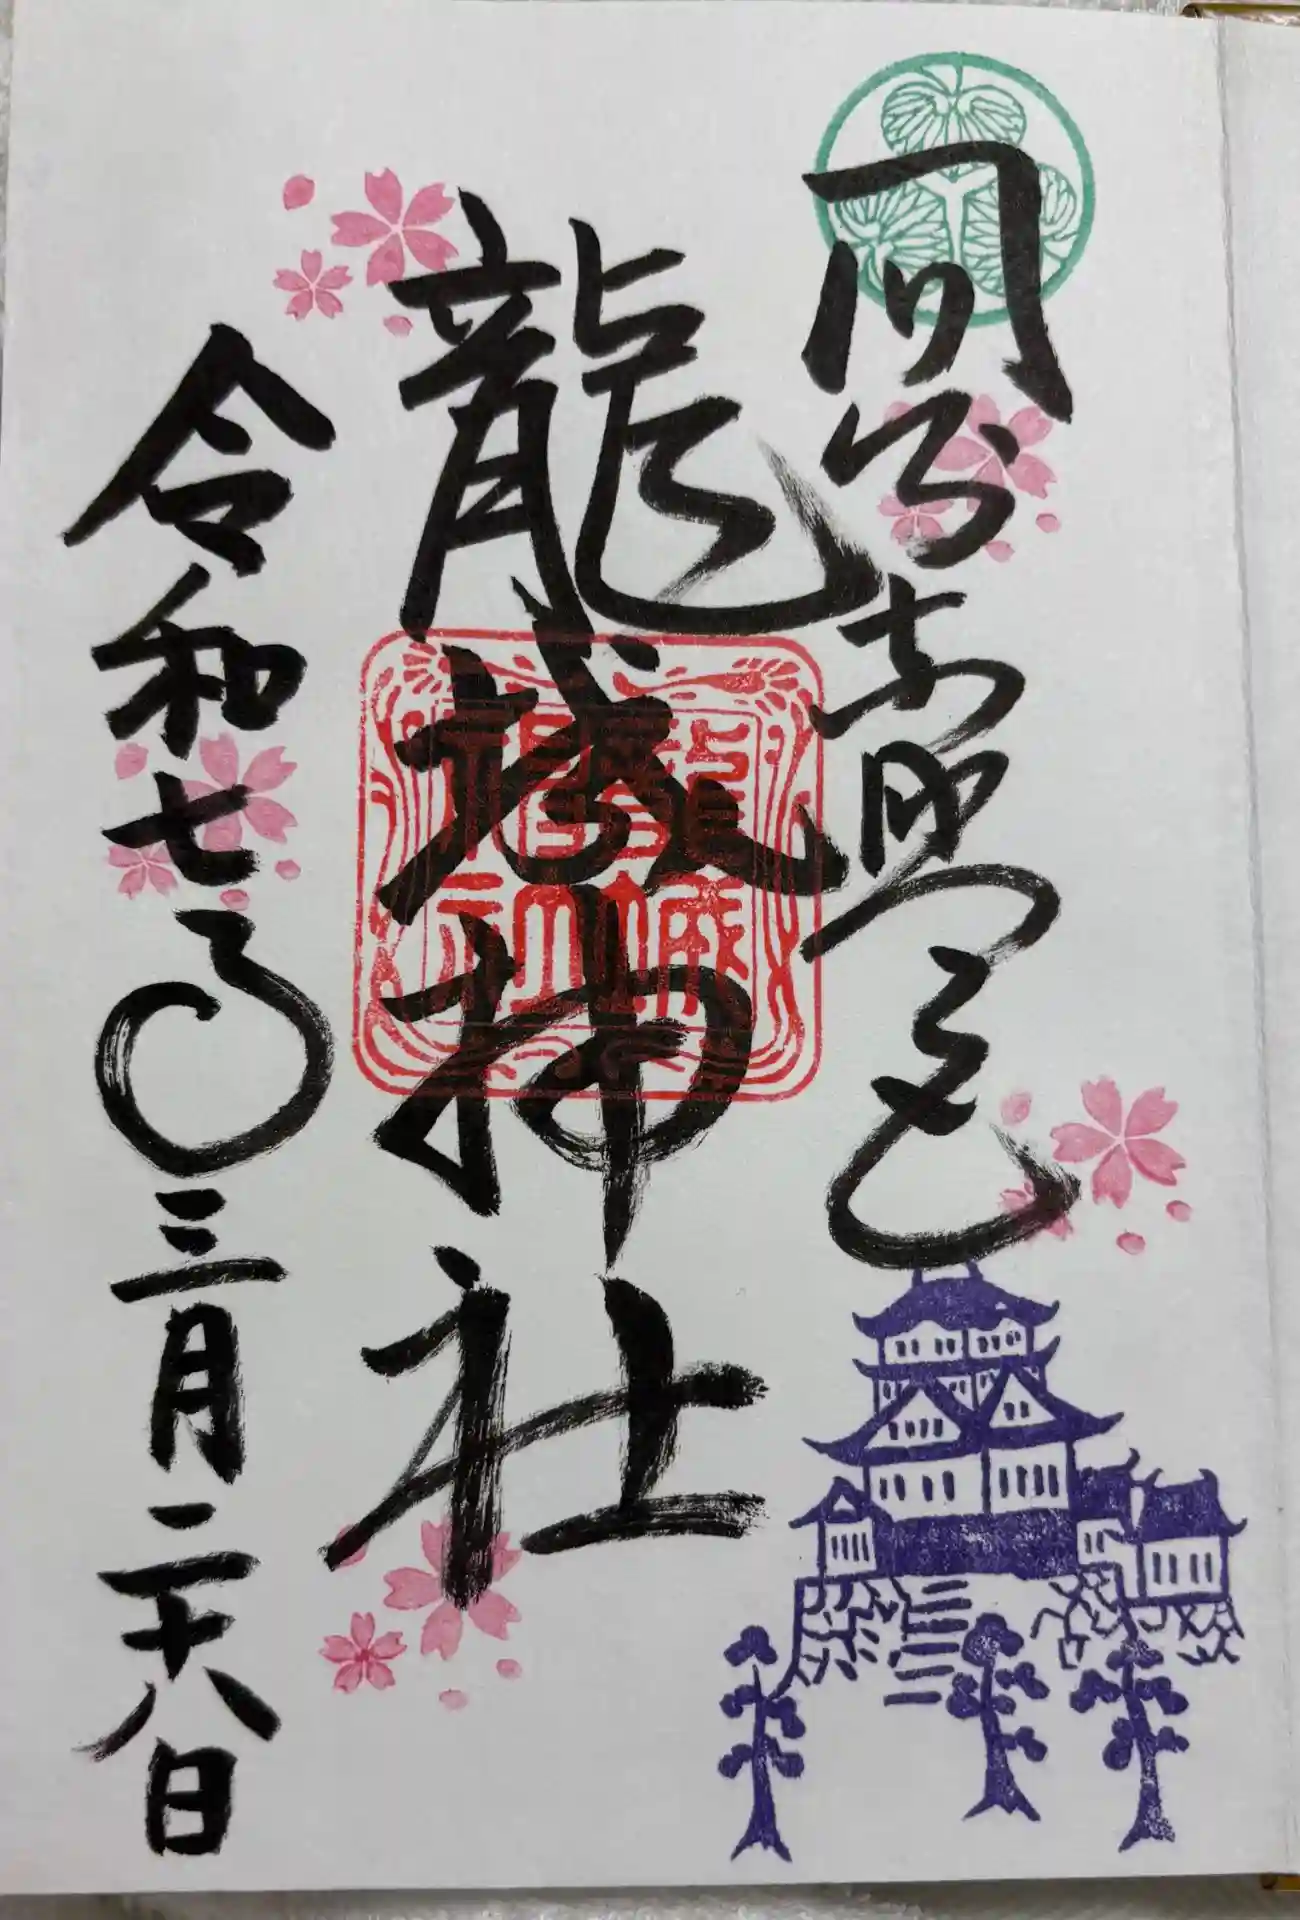 龍城神社
龍城
神社
令和七年三月二十八日